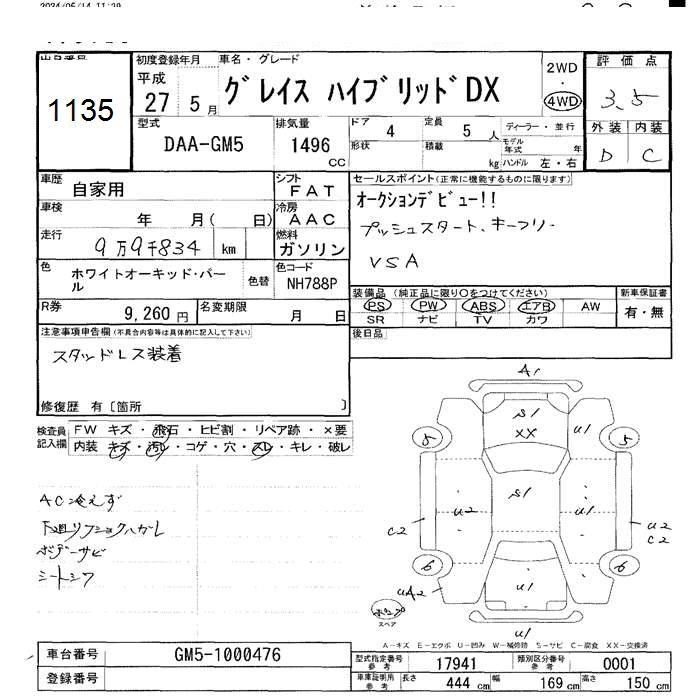 2024/05/14 11:29
出品番号
1135
初度登録年月
平成
27 5 月
車名・グレード
グレイス ハイブリッド DX
2WD
・
4WD
評価点
3.5
外装 内装
D C
型式
DAA-GM5
排気量
1496
CC
ドア 4
形状
定員 5 人
積載 kg
ディーラー・並行
モデル年式 年
ハンドル 左・右
車歴
自家用
シフト
FAT
車検
年 月( 日)
冷房
AAC
走行
9万9千834 km
燃料
ガソリン
色
ホワイトオーキッド・パール
色替
色コード
NH788P
R券
9,260 円
名変期限
月 日
セールスポイント(正常に機能するものに限ります)
オークションデビュー!!
プッシュスタート、キーフリー
VSA
装備品 (純正品に限り○をつけてください)
PS PW ABS エアB AW
SR ナビ TV カワ
新車保証書
有・無
後日品
注意事項申告欄(不具合内容等は具体的に記入して下さい)
スタッドレス装着
修復歴 有〔箇所 〕
検査員記入欄
FW キズ・飛石・ヒビ割・リペア跡・×要
内装・キズ・汚レ・コゲ・穴・スレ・キレ・破レ
AC冷えず
ボデーサビ
シートシワ
A1
S1
XX
U1
5
5
S1
U2
U1
C2
U2
C2
6
6
UA2
U1
U1
スペア
A-キズ E-エクボ U-凹み W-補修跡 S-サビ C-腐食 XX-交換済
車台番号
GM5-1000476
登録番号
型式指定番号
参考
17941
類別区分番号
参考
0001
車庫証明用
参考
長さ 444 cm
幅 169 cm
高さ 150 cm